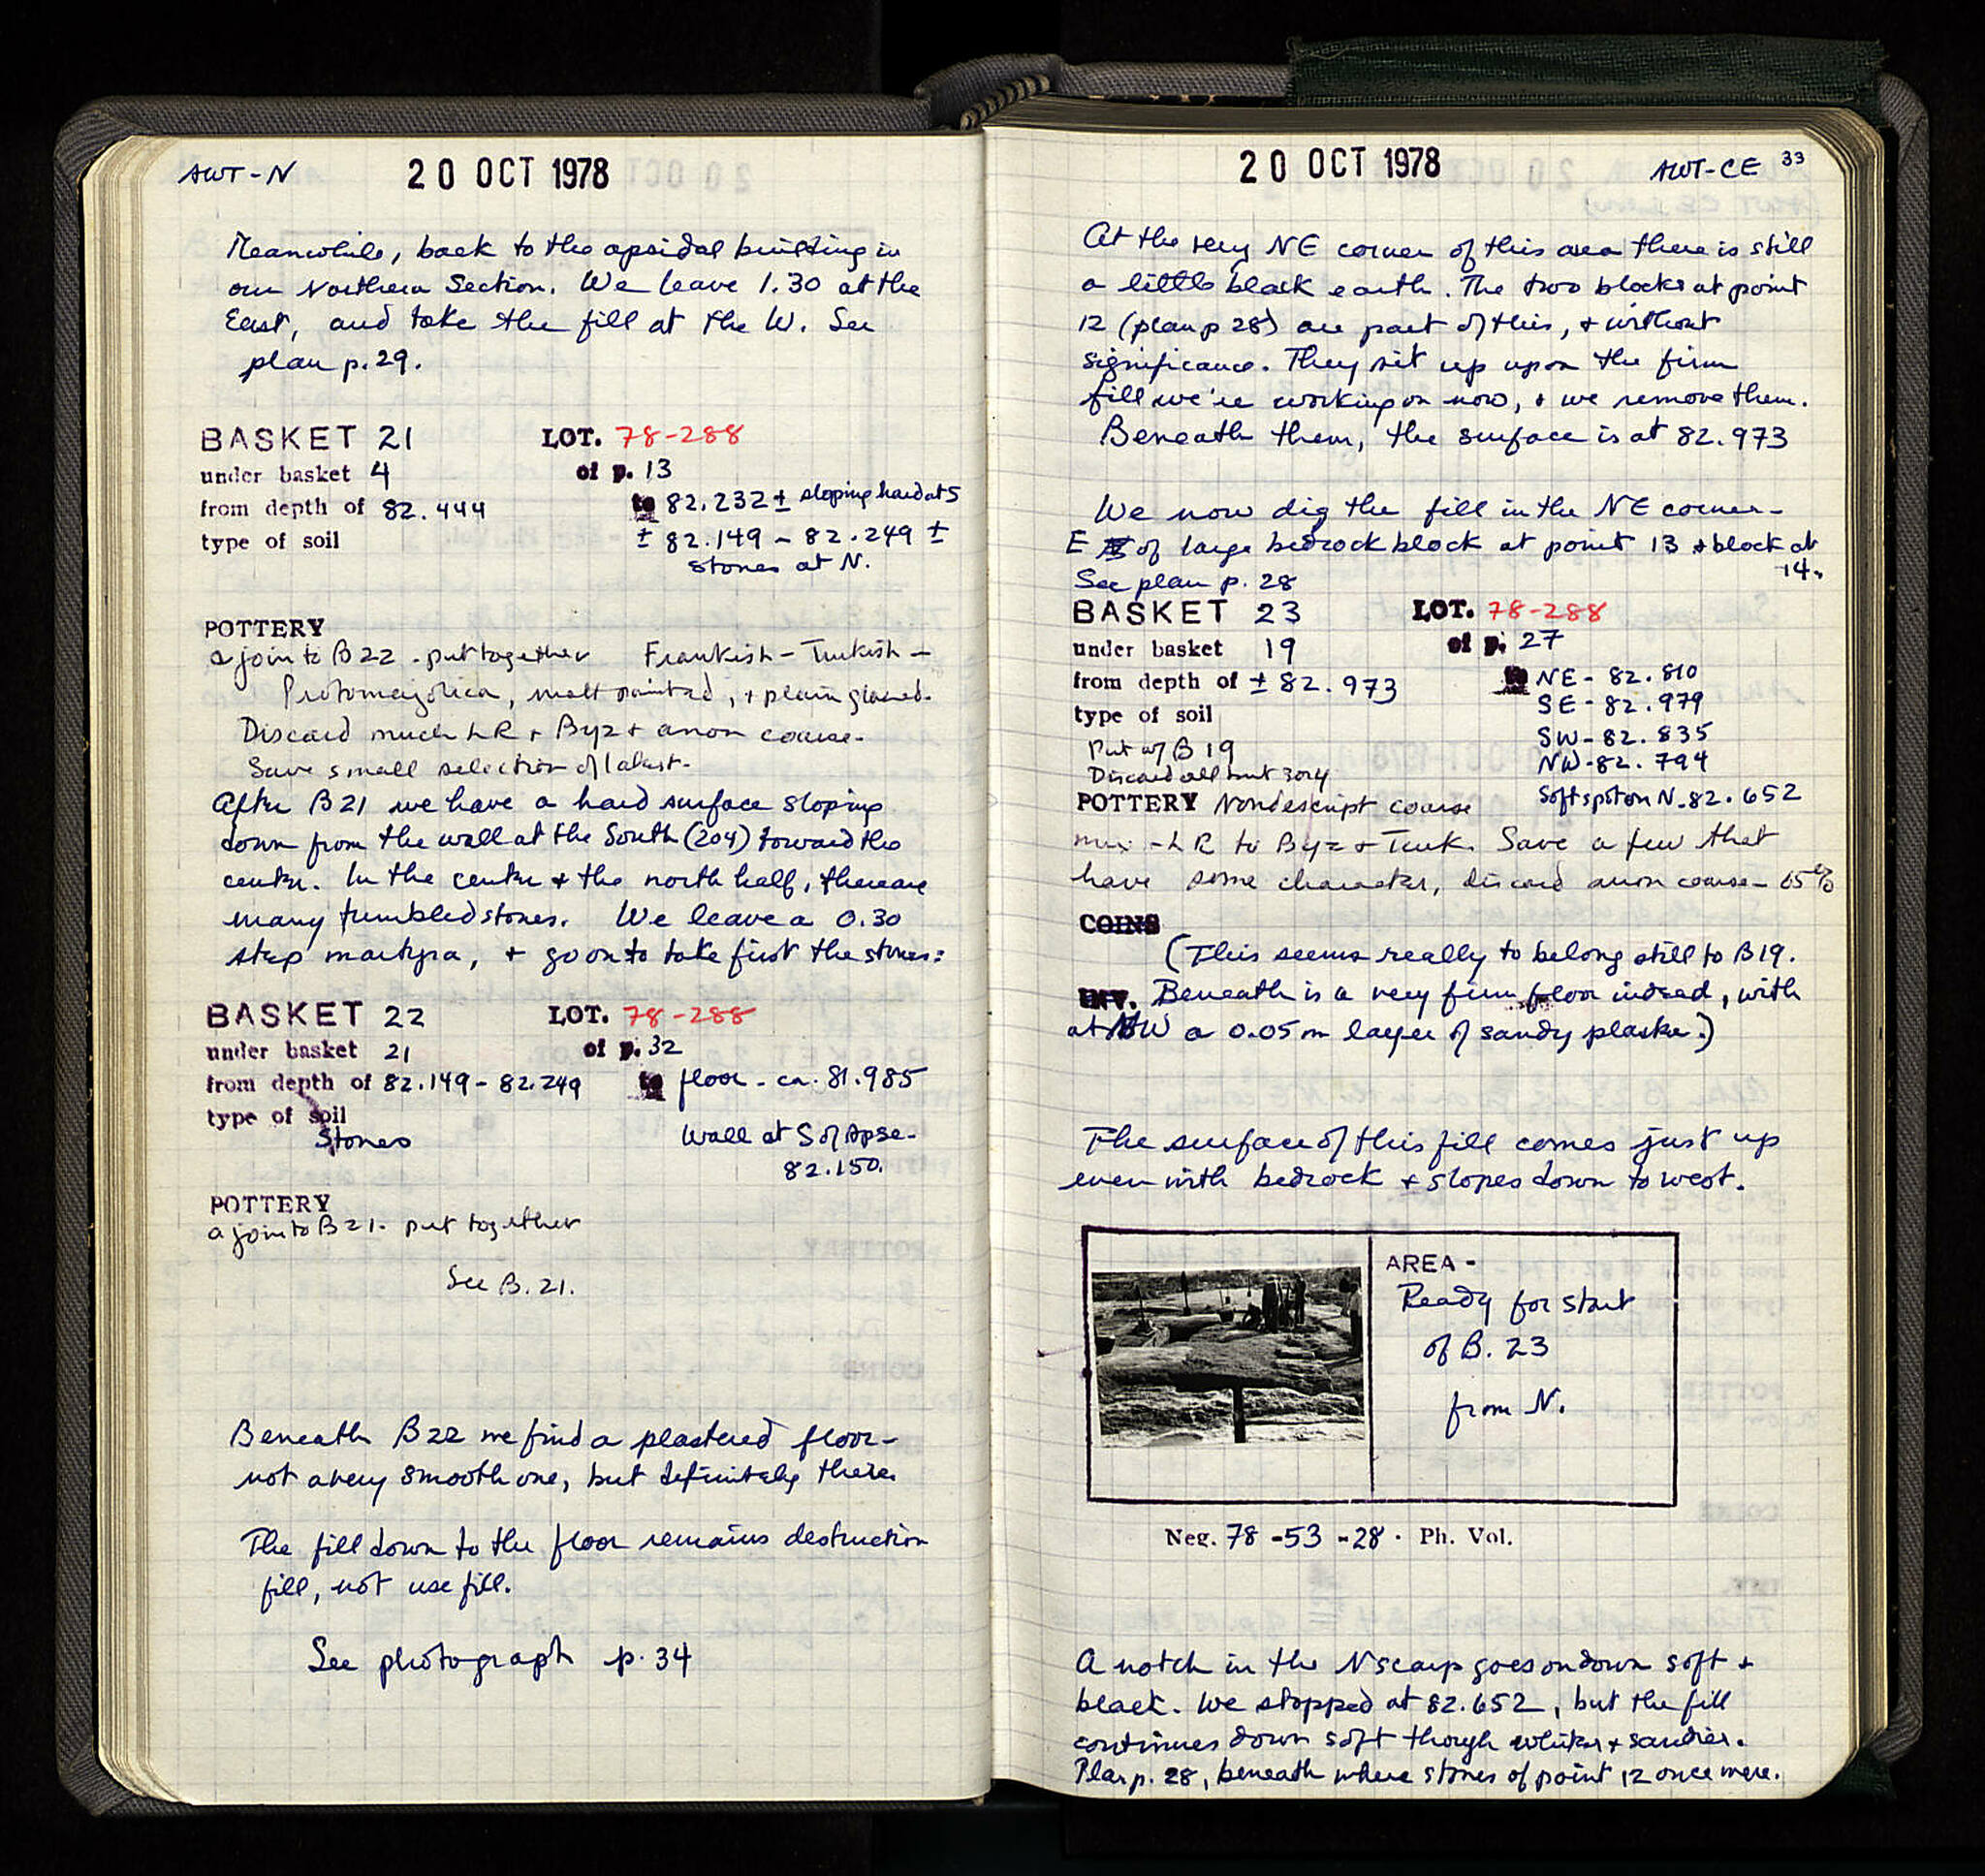 AWT-N 20 OCT 1978
Meanwhile, back to the apsidal building in
our Northern Section. We leave 1.30 at the
East, and take the fill at the W. See
plan p.29.
BASKET 21 LOT. 78-288
under basket 4 of p. 13
from depth of 82.444 to 82.232 ± sloping hard at S
type of soil ± 82.149 - 82.249 ±
stones at N.
POTTERY
a join to B22 - put together Frankish - Turkish -
Protomajolica, matt painted, + plain glazed.
Discard much LR + Byz + anon coarse.
Save small selection of latest.
After B21 we have a hard surface sloping
down from the wall at the South (204) toward the
center. In the center + the north half, there are
many tumbled stones. We leave a 0.30
step martyra, + go on to take first the stones:
BASKET 22 LOT. 78-288
under basket 21 of p. 32
from depth of 82.149 - 82.249 to floor - ca. 81.985
type of soil
Stones Wall at S of Apse -
82.150.
POTTERY
a join to B21. put together
See B.21.
Beneath B22 we find a plastered floor -
not a very smooth one, but definitely there.
The fill down to the floor remains destruction
fill, not use fill.
See photograph p. 34
20 OCT 1978 AWT-CE 33
At the very NE corner of this area there is still
a little black earth. The two blocks at point
12 (plan p 28) are part of this, + without
significance. They sit up upon the firm
fill we're working on now, + we remove them.
Beneath them, the surface is at 82.973
We now dig the fill in the NE corner -
E of large bedrock block at point 13 + block at
14.
See plan p. 28
BASKET 23 LOT. 78-288
under basket 19 of p. 27
from depth of ± 82.973 to NE - 82.810
SE - 82.979
type of soil
SW - 82.835
Put w/ B 19 NW - 82.794
Discard all but
POTTERY Nondescript coarse Soft spot on N - 82.652
mix - LR to Byz + Turk. Save a few that
have some character, discard anon coarse - 65%
COINS
(This seems really to belong still to B19.
INV. Beneath is a very firm floor indeed, with
at NW a 0.05 m layer of sandy plaster.)
The surface of this fill comes just up
even with bedrock + slopes down to west.
AREA -
Ready for start
of B. 23
from N.
Neg. 78-53-28 · Ph. Vol.
A notch in the N scarp goes on down soft +
black. We stopped at 82.652, but the fill
continues down soft though whiter + sandier.
Plan p. 28, beneath where stones of point 12 once were.